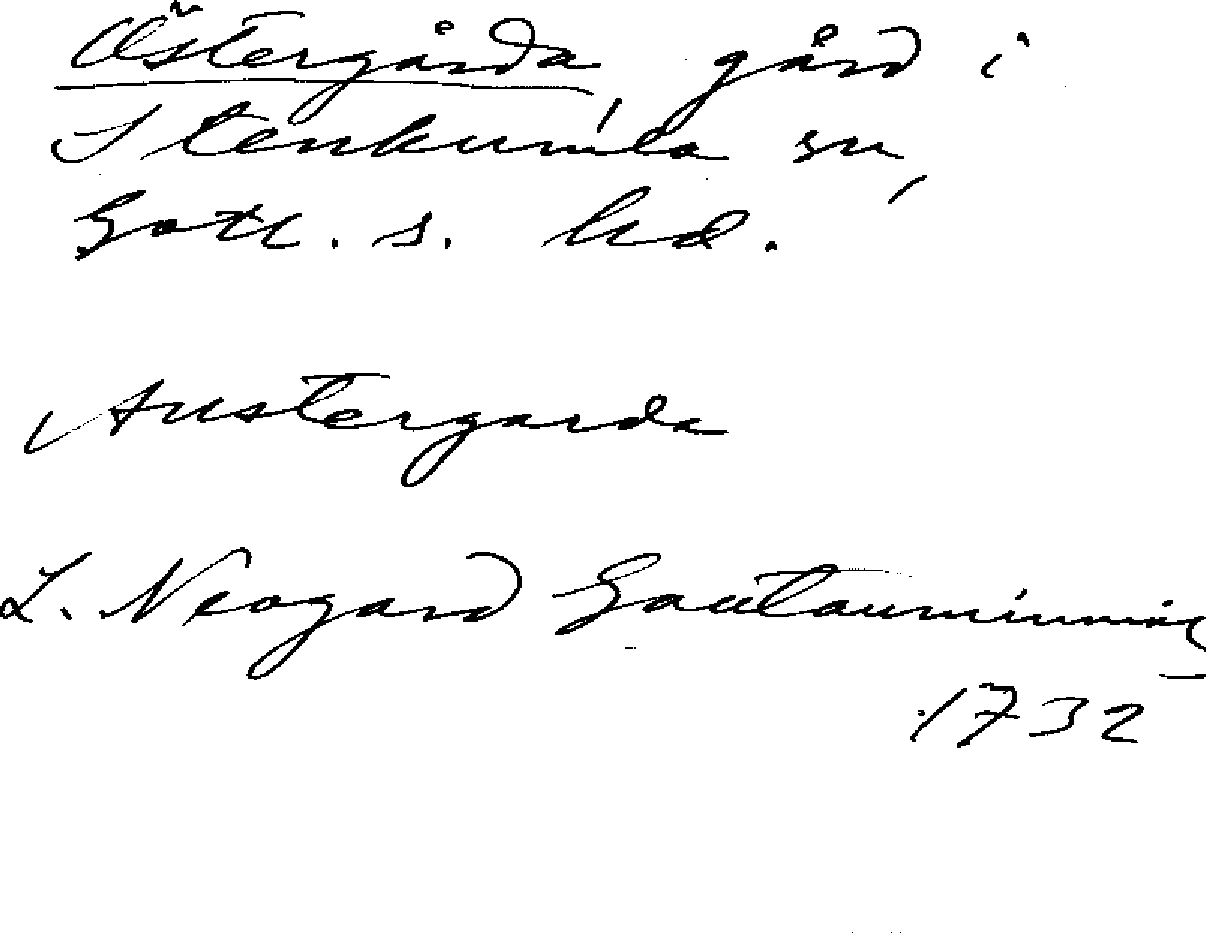 Östergårda gård i
Stenkumla sn,
Gotl. s. hd.
Austergarda
L. Neogard Gautauminning
1732